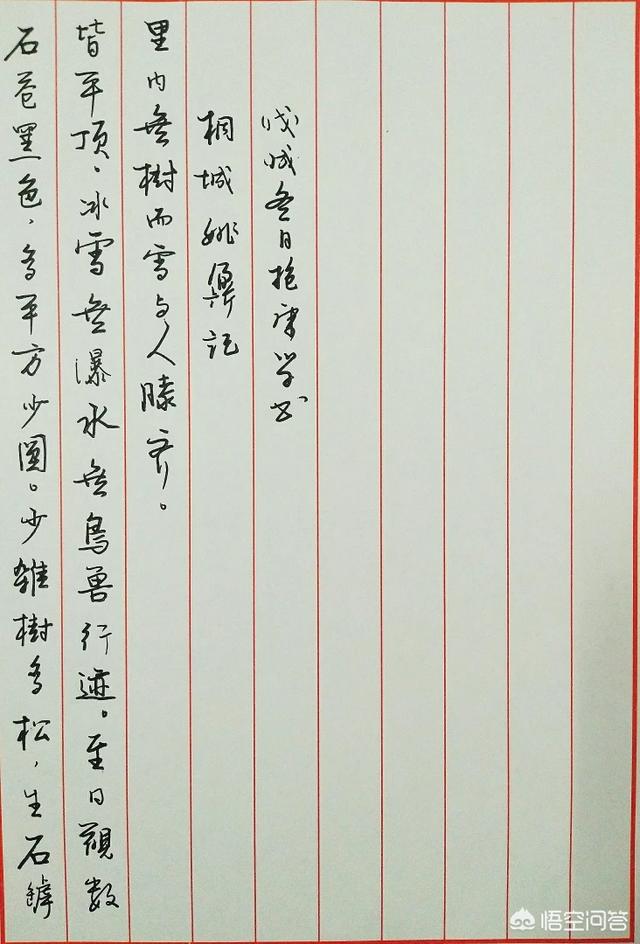 石苍黑色，多平方少圓。少雜樹多松，生石罅
皆平顶。冰雪無瀑水無鳥兽行迹。至日觀數
里内無樹而雪与人膝齐。
桐城姚鼐记
戊戌冬日抱学书
悟空问答